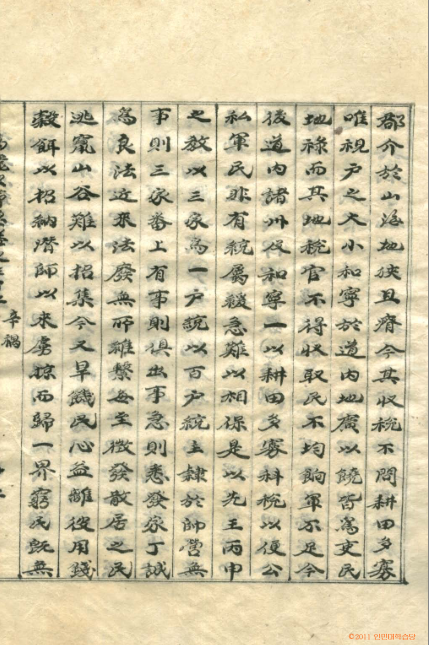 郡介於山海地狹且瘠今其收稅不問耕田多寡
唯視戶之大小和寧於道內地廣以饒皆爲吏民
地祿而其地稅官不得收取民不均餉軍不足今
後道內諸州及和寧一以耕田多寡科稅以便公
私軍民非有統屬緩急難以相保是以先王丙申
之敎以三家爲一戶統以百戶統主隷於帥營無
事則三家番上有事則俱出事急則悉發家丁誠
爲良法近來法廢無所維繫每至徵發散居之民
逃竄山谷難以招集今又旱饑民心益離彼用錢
穀餌以招納潛師以來虜掠而歸一界窮民旣無
辛禑
©2011 인민대학습당